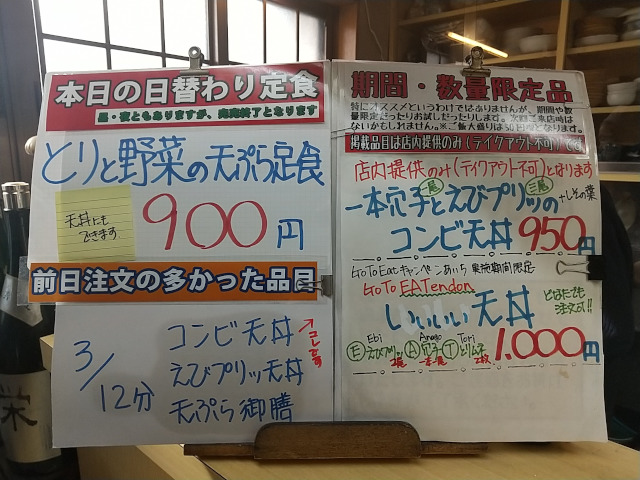 本日の日替わり定食
昼・夜ともありますが、完売終了となります
とりと野菜の天ぷら定食
天丼にも
できます
900円
前日注文の多かった品目
3/12分
コンビ天丼
えびプリッ天丼
天ぷら御膳
↗コレです
期間・数量限定品
特にオススメというわけではありませんが、期間や数
量限定だったりお試しだったりします。次回ご来店時は
ないかもしれません。※ご飯大盛りは50円増となります。
掲載品目は店内提供のみ(テイクアウト不可)です
店内提供のみ(テイクアウト不可)となります
一本穴子と尾えびプリッの三尾+しその葉
コンビ天丼950円
GoToEatキャンペーンあいち 実施期間限定
GoTo EATendon
いいいい天丼
どなたでも
注文OK!!
Ebi Anago Tori
Ⓔえびプリッ2尾Ⓐ穴子一本尾Ⓣとりムネ2枚
1.000円
栄